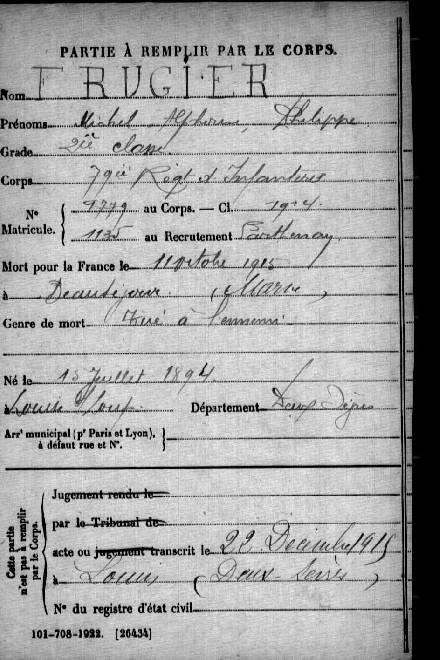 PARTIE À REMPLIR PAR LE CORPS.
Nom FRUGIER
Prénoms Michel Alphonse, Philippe
Grade 2ie classe
Corps Régt d'Infanterie
N° Matricule. { 9779 au Corps. — Cl. 1914
1135 au Recrutement Parthenay
Mort pour la France le 11 octobre 1915
à Beauséjour (Marne)
Genre de mort Tué à l'ennemi
Né le 15 Juillet 1894
Département Deux
Arrt municipal (pr Paris et Lyon),
à défaut rue et N°.
Cette partie
n'est pas à remplir
par le Corps.
Jugement rendu le
par le Tribunal de
acte ou jugement transcrit le 22 Décembre 1915
à (Deux-Sèvres)
N° du registre d'état civil
101-708-1922. [26434]